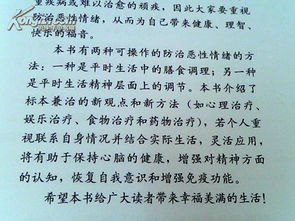 重疾病或难以治愈的顽疾，因此大家要重视
防治恶性情绪，从而为自己带来健康、理智、
快乐的福音。
本书有两种可操作的防治恶性情绪的方
法：一种是平时生活中的膳食调理；另一种
是平时生活精神层面上的调节。本书介绍了
标本兼治的新观点和新方法（如心理治疗、
娱乐治疗、食物治疗和药物治疗），若个人重
视联系自身情况并结合实际生活，灵活应用，
将有助于保持心脑的健康，增强对精神方面
的认知，恢复自我意识和增强免疫功能。
希望本书给广大读者带来幸福美满的生活！